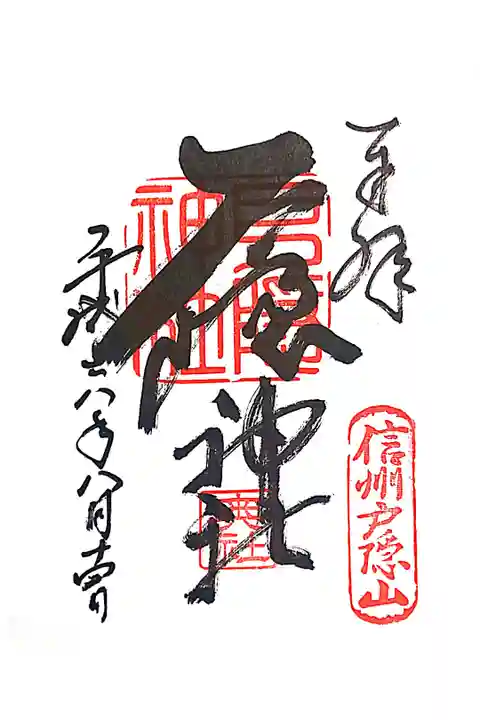 奉拝
信州戸隠山
戸隠神社
戸隠神社
奥社
平成二十八年八月十四日